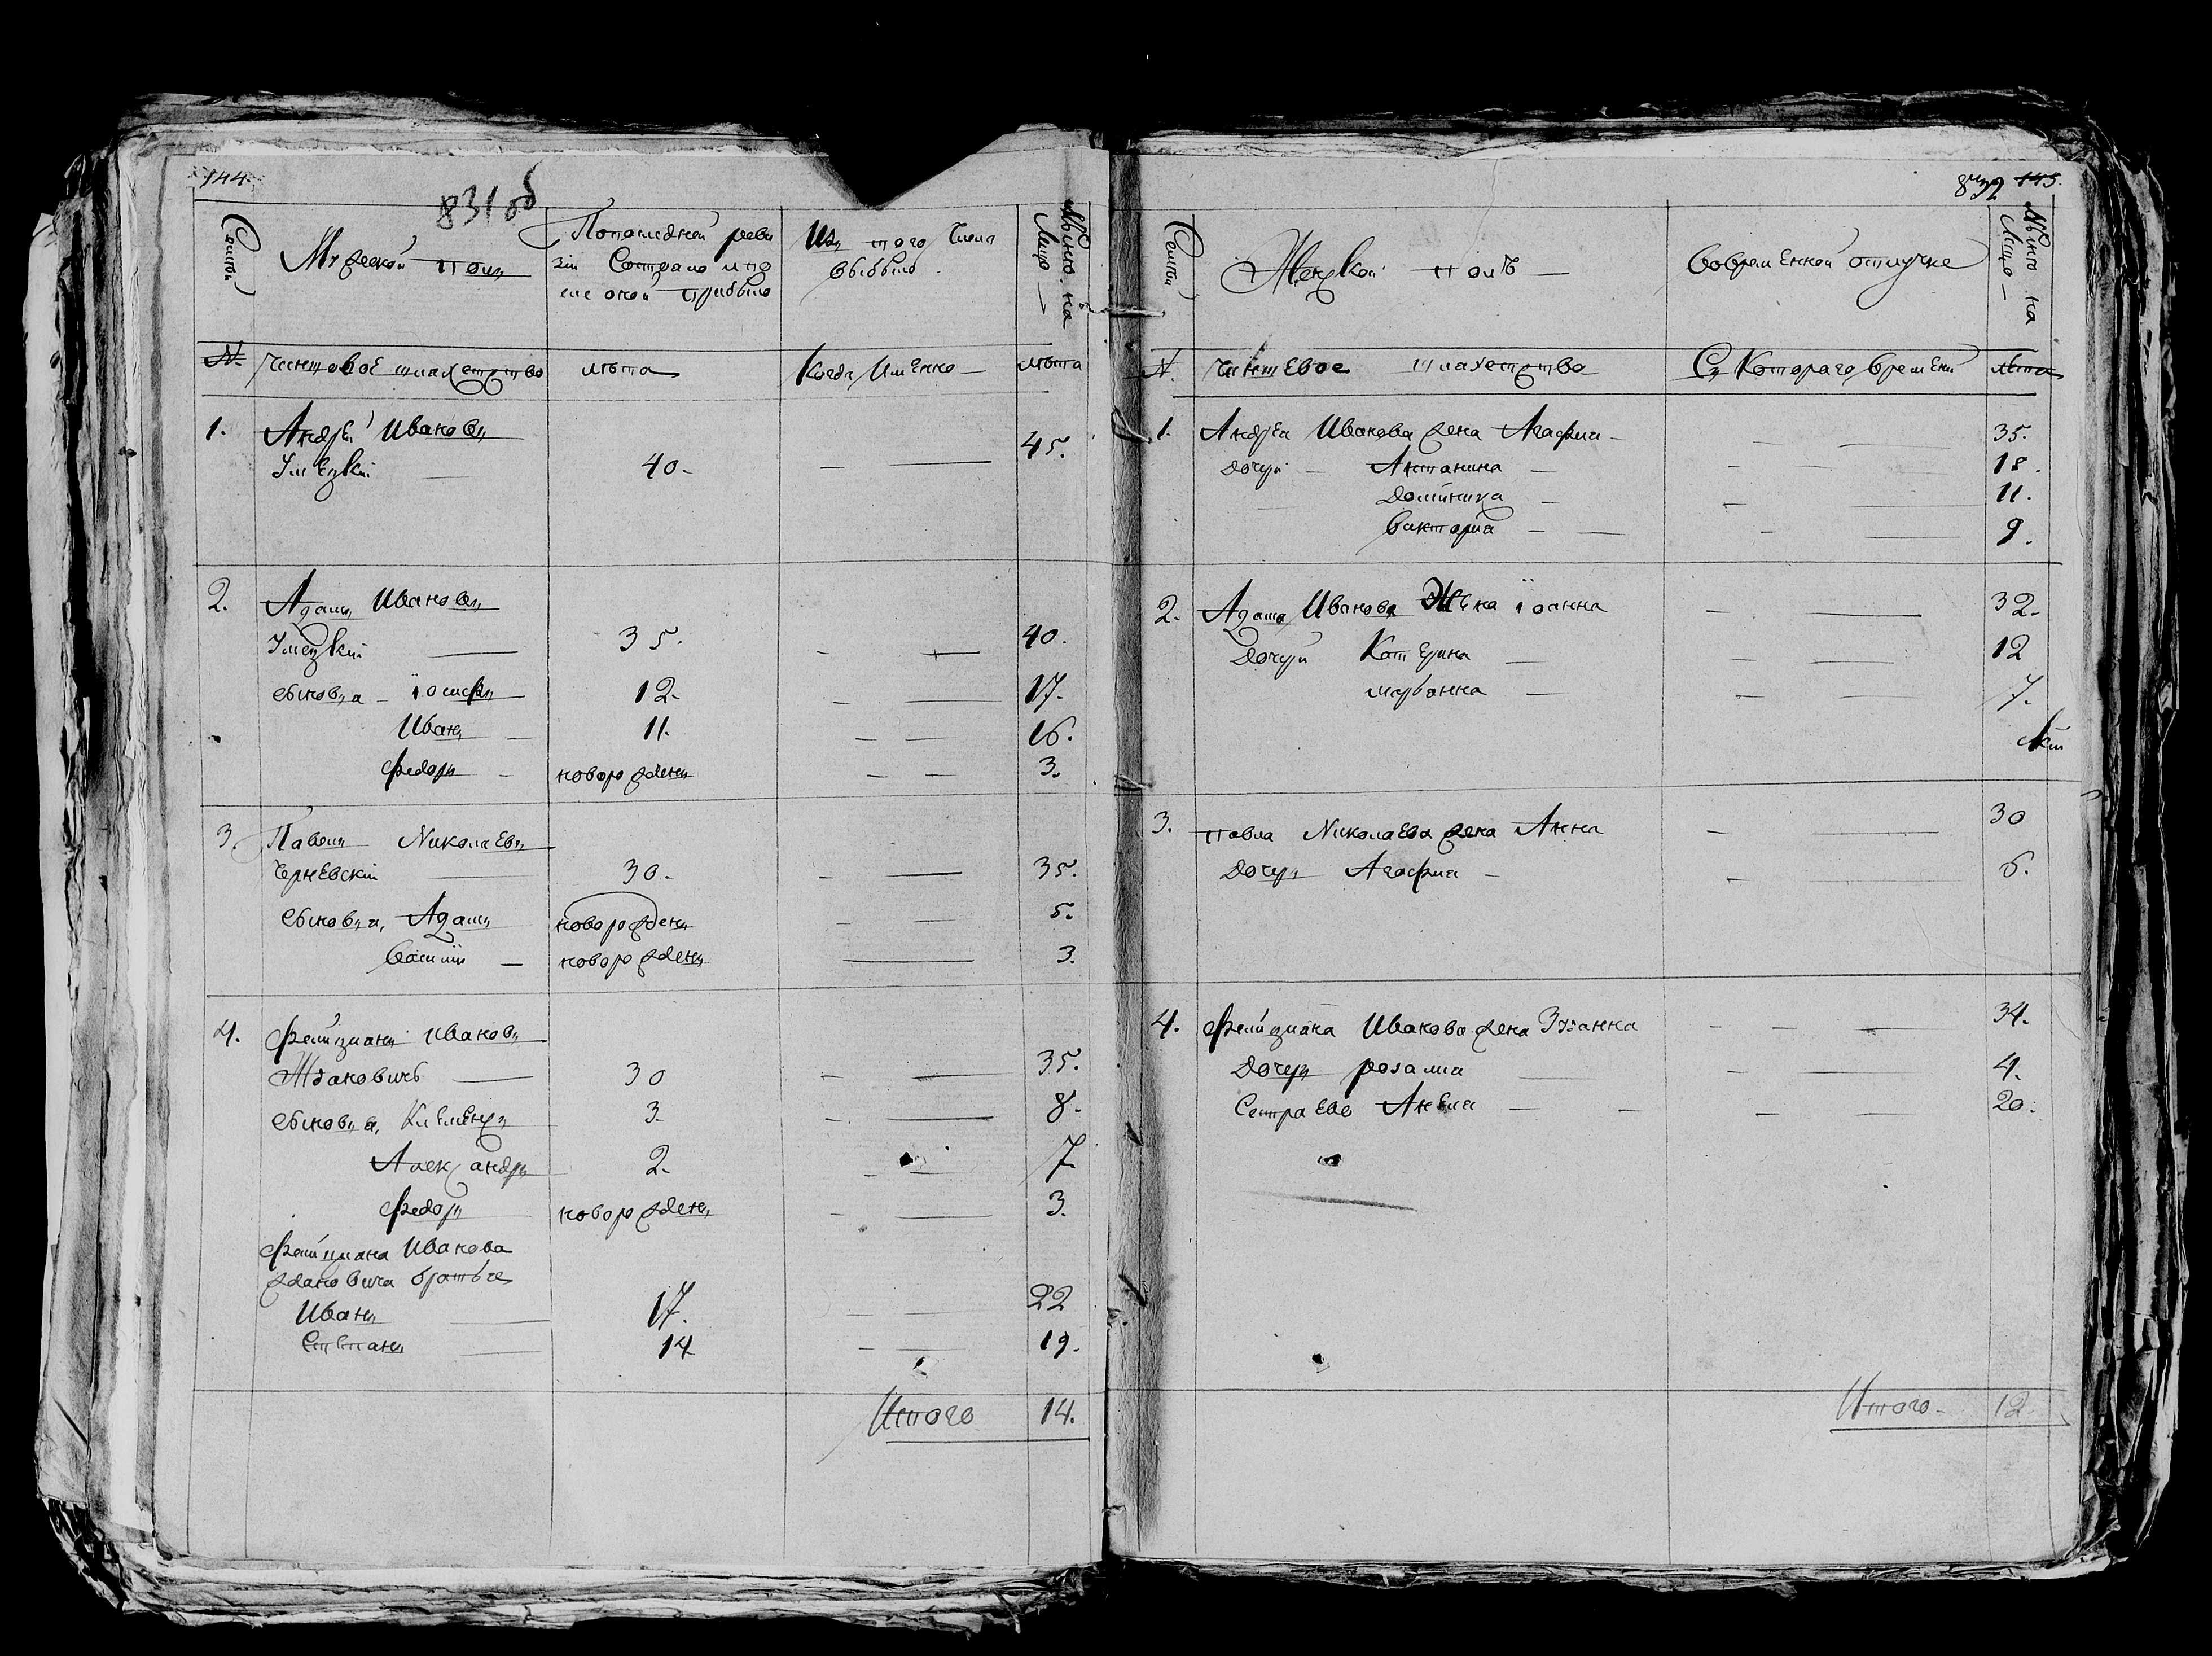 144.
831об
Семьи
Мужеской полъ
По последней реви
зіи Состояло и по
сле оной прибыло
Изъ того Числа
выбыло.
Нынѣ на
Лицо —
№ Чиншовое шляхетство
лѣта
Когда Именно —
лѣта
1. Андрей Ивановъ 45.
— 40. — —
2. Адамъ Ивановъ
— 35. — — 40.
сыновья — іосифъ 12. — — 17.
Иванъ — 11. — — 16.
Федоръ — новорожденъ — — 3.
3. Павелъ Николаевъ
Чернѣвскій — 30. — — 35.
сыновья, Адамъ новорожденъ — — 5.
Василій — новорожденъ — 3.
4. Фелиціанъ Ивановъ
Ждановичъ — 30 — — 35.
сыновья, Клеменсъ 3. — — 8.
Александръ 2. — — 7.
Федоръ новорожденъ — — 3.
Фелиціана Иванова
Ждановича братья
Иванъ — 17. — — 22
Степанъ — 14 — — 19.
Итого 14.
832 145.
Семьи
Женской полъ —
Во временной отлучке
Нынѣ на
Лицо —
№. Чиншевое шляхетство
Съ Котораго времени
лѣта
1. Андрея Иванова жена Агафия — — — 35.
дочери — Антанина — — — 18.
Доминика — — — 11.
Виктория — — — — 9.
2. Адама Иванова Жена іоанна — — 32.
Дочери Катерина — — — 12
марьанна — — — 7.
3. павла Николаева жена Анна — — 30
Дочерь Агафия — — — 6.
4. Фелиціана Иванова жена — — — 34.
Дочерь розалиа — — — 4.
Сестра Ево Анеля — — — — 20.
Итого. 12.